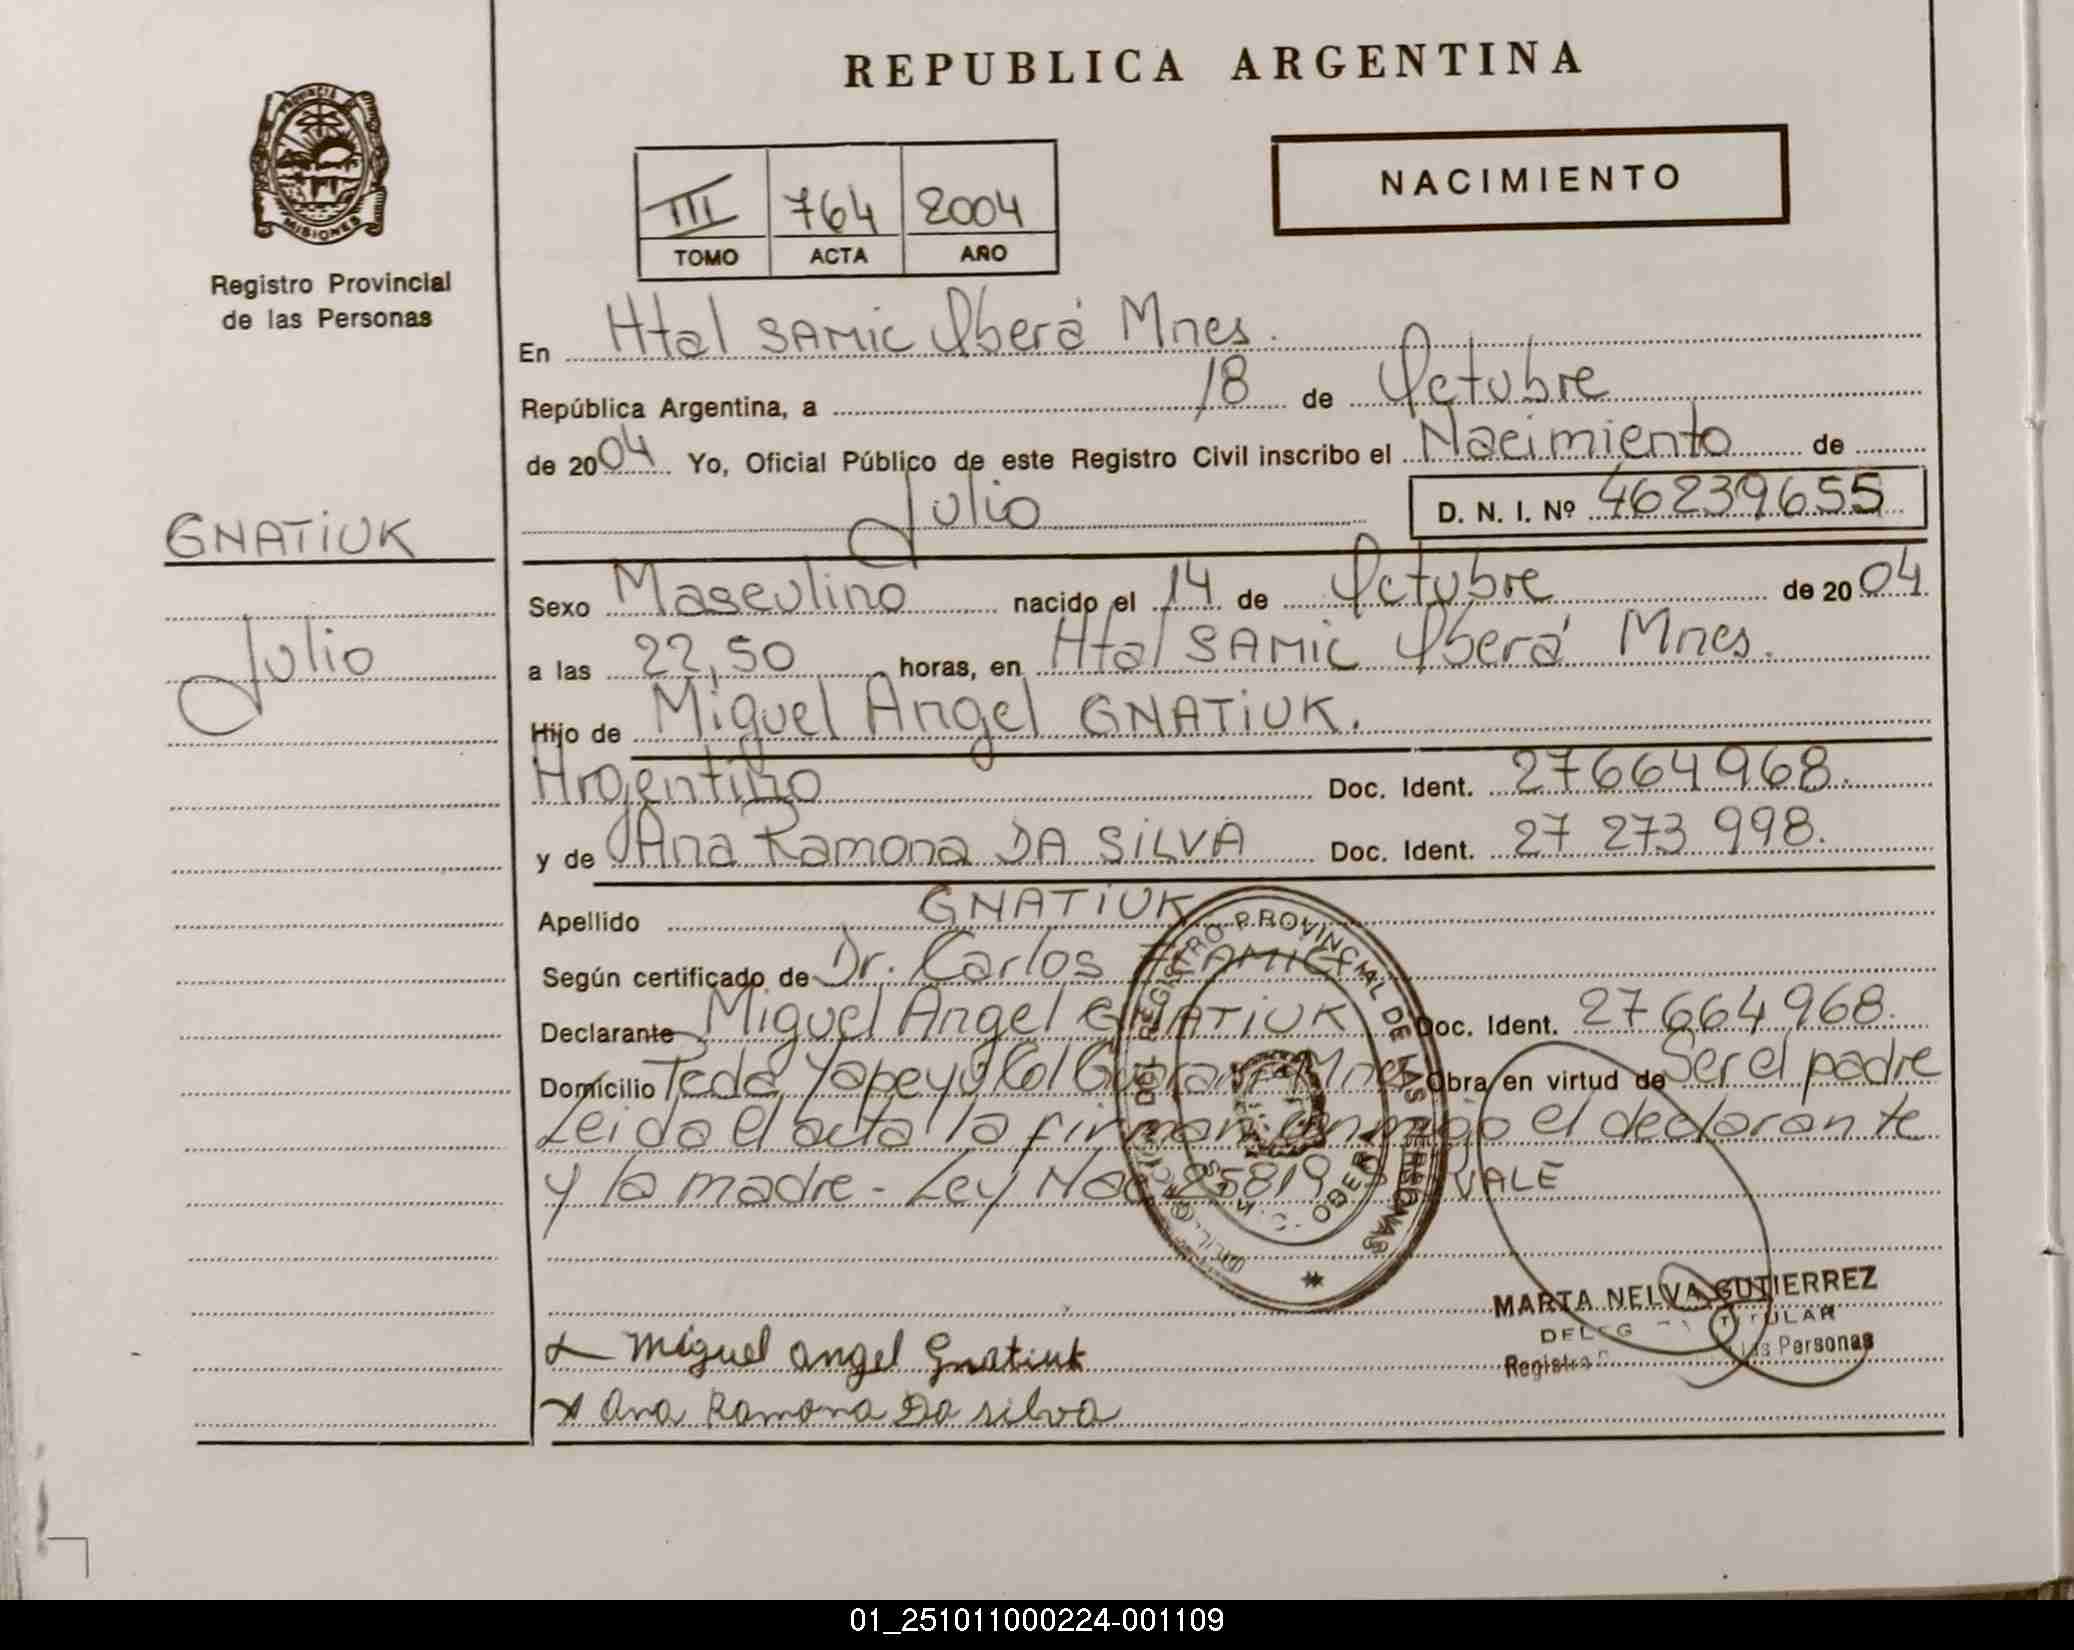 REPUBLICA ARGENTINA
PROVINCIA DE
MISIONES
Registro Provincial
de las Personas
III 764 2004
TOMO ACTA AÑO
NACIMIENTO
En Htal SAMIC Oberá Mnes.
República Argentina, a 18 de Octubre
de 2004 Yo, Oficial Público de este Registro Civil inscribo el Nacimiento de
Julio D. N. I. Nº 46239655
GNATIUK
Julio
Sexo Masculino nacido el 14 de Octubre de 2004
a las 22,50 horas, en Htal SAMIC Oberá Mnes.
Hijo de Miguel Angel GNATIUK.
Argentino Doc. Ident. 27664968.
y de Ana Ramona DA SILVA Doc. Ident. 27 273 998.
Apellido GNATIUK
Según certificado de Dr. Carlos
Declarante Miguel Angel GNATIUK Doc. Ident. 27664968.
Domicilio Tedo Yapeyú Col Guaraní Mnes Obra en virtud de Ser el padre
Leida el acta la firman conmigo el declarante
y la madre - Ley Nac 25819 VALE
REGISTRO PROVINCIAL DE LAS PERSONAS
OBERA
MARTA NELVA GUTIERREZ
TITULAR
las Personas
Miguel angel Gnatiuk
Ana Ramona Da silva
01_251011000224-001109